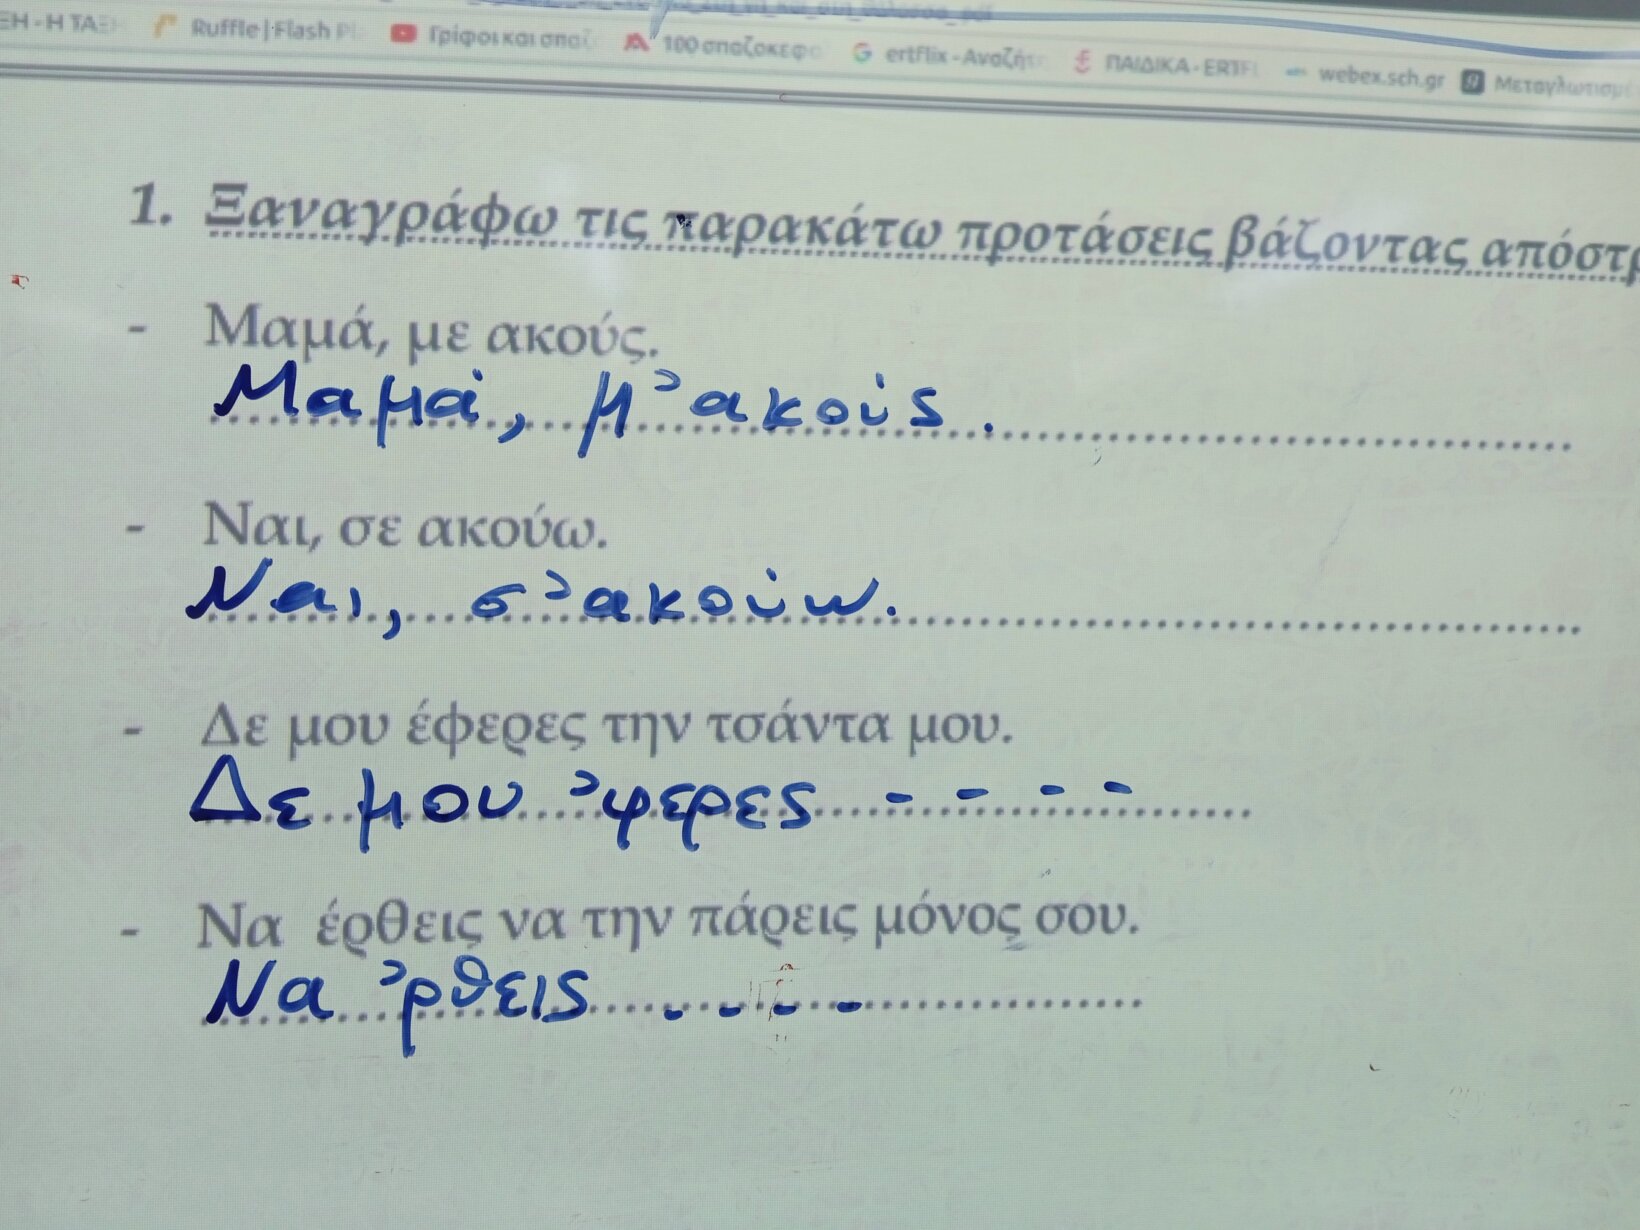 Ruffle | Flash
Γρίφοι και σπαζ
100 σπαζοκεφ
ertflix - Αναζήτ
ΠΑΙΔΙΚΑ - ERTFL
webex.sch.gr
Μεταγλωτισμέ
1. Ξαναγράφω τις παρακάτω προτάσεις βάζοντας απόστρ
- Μαμά, με ακούς.
Μαμά, μ' ακούς.
- Ναι, σε ακούω.
Ναι, σ' ακούω.
- Δε μου έφερες την τσάντα μου.
Δε μου 'φερες - - - -
- Να έρθεις να την πάρεις μόνος σου.
Να 'ρθεις - - - -